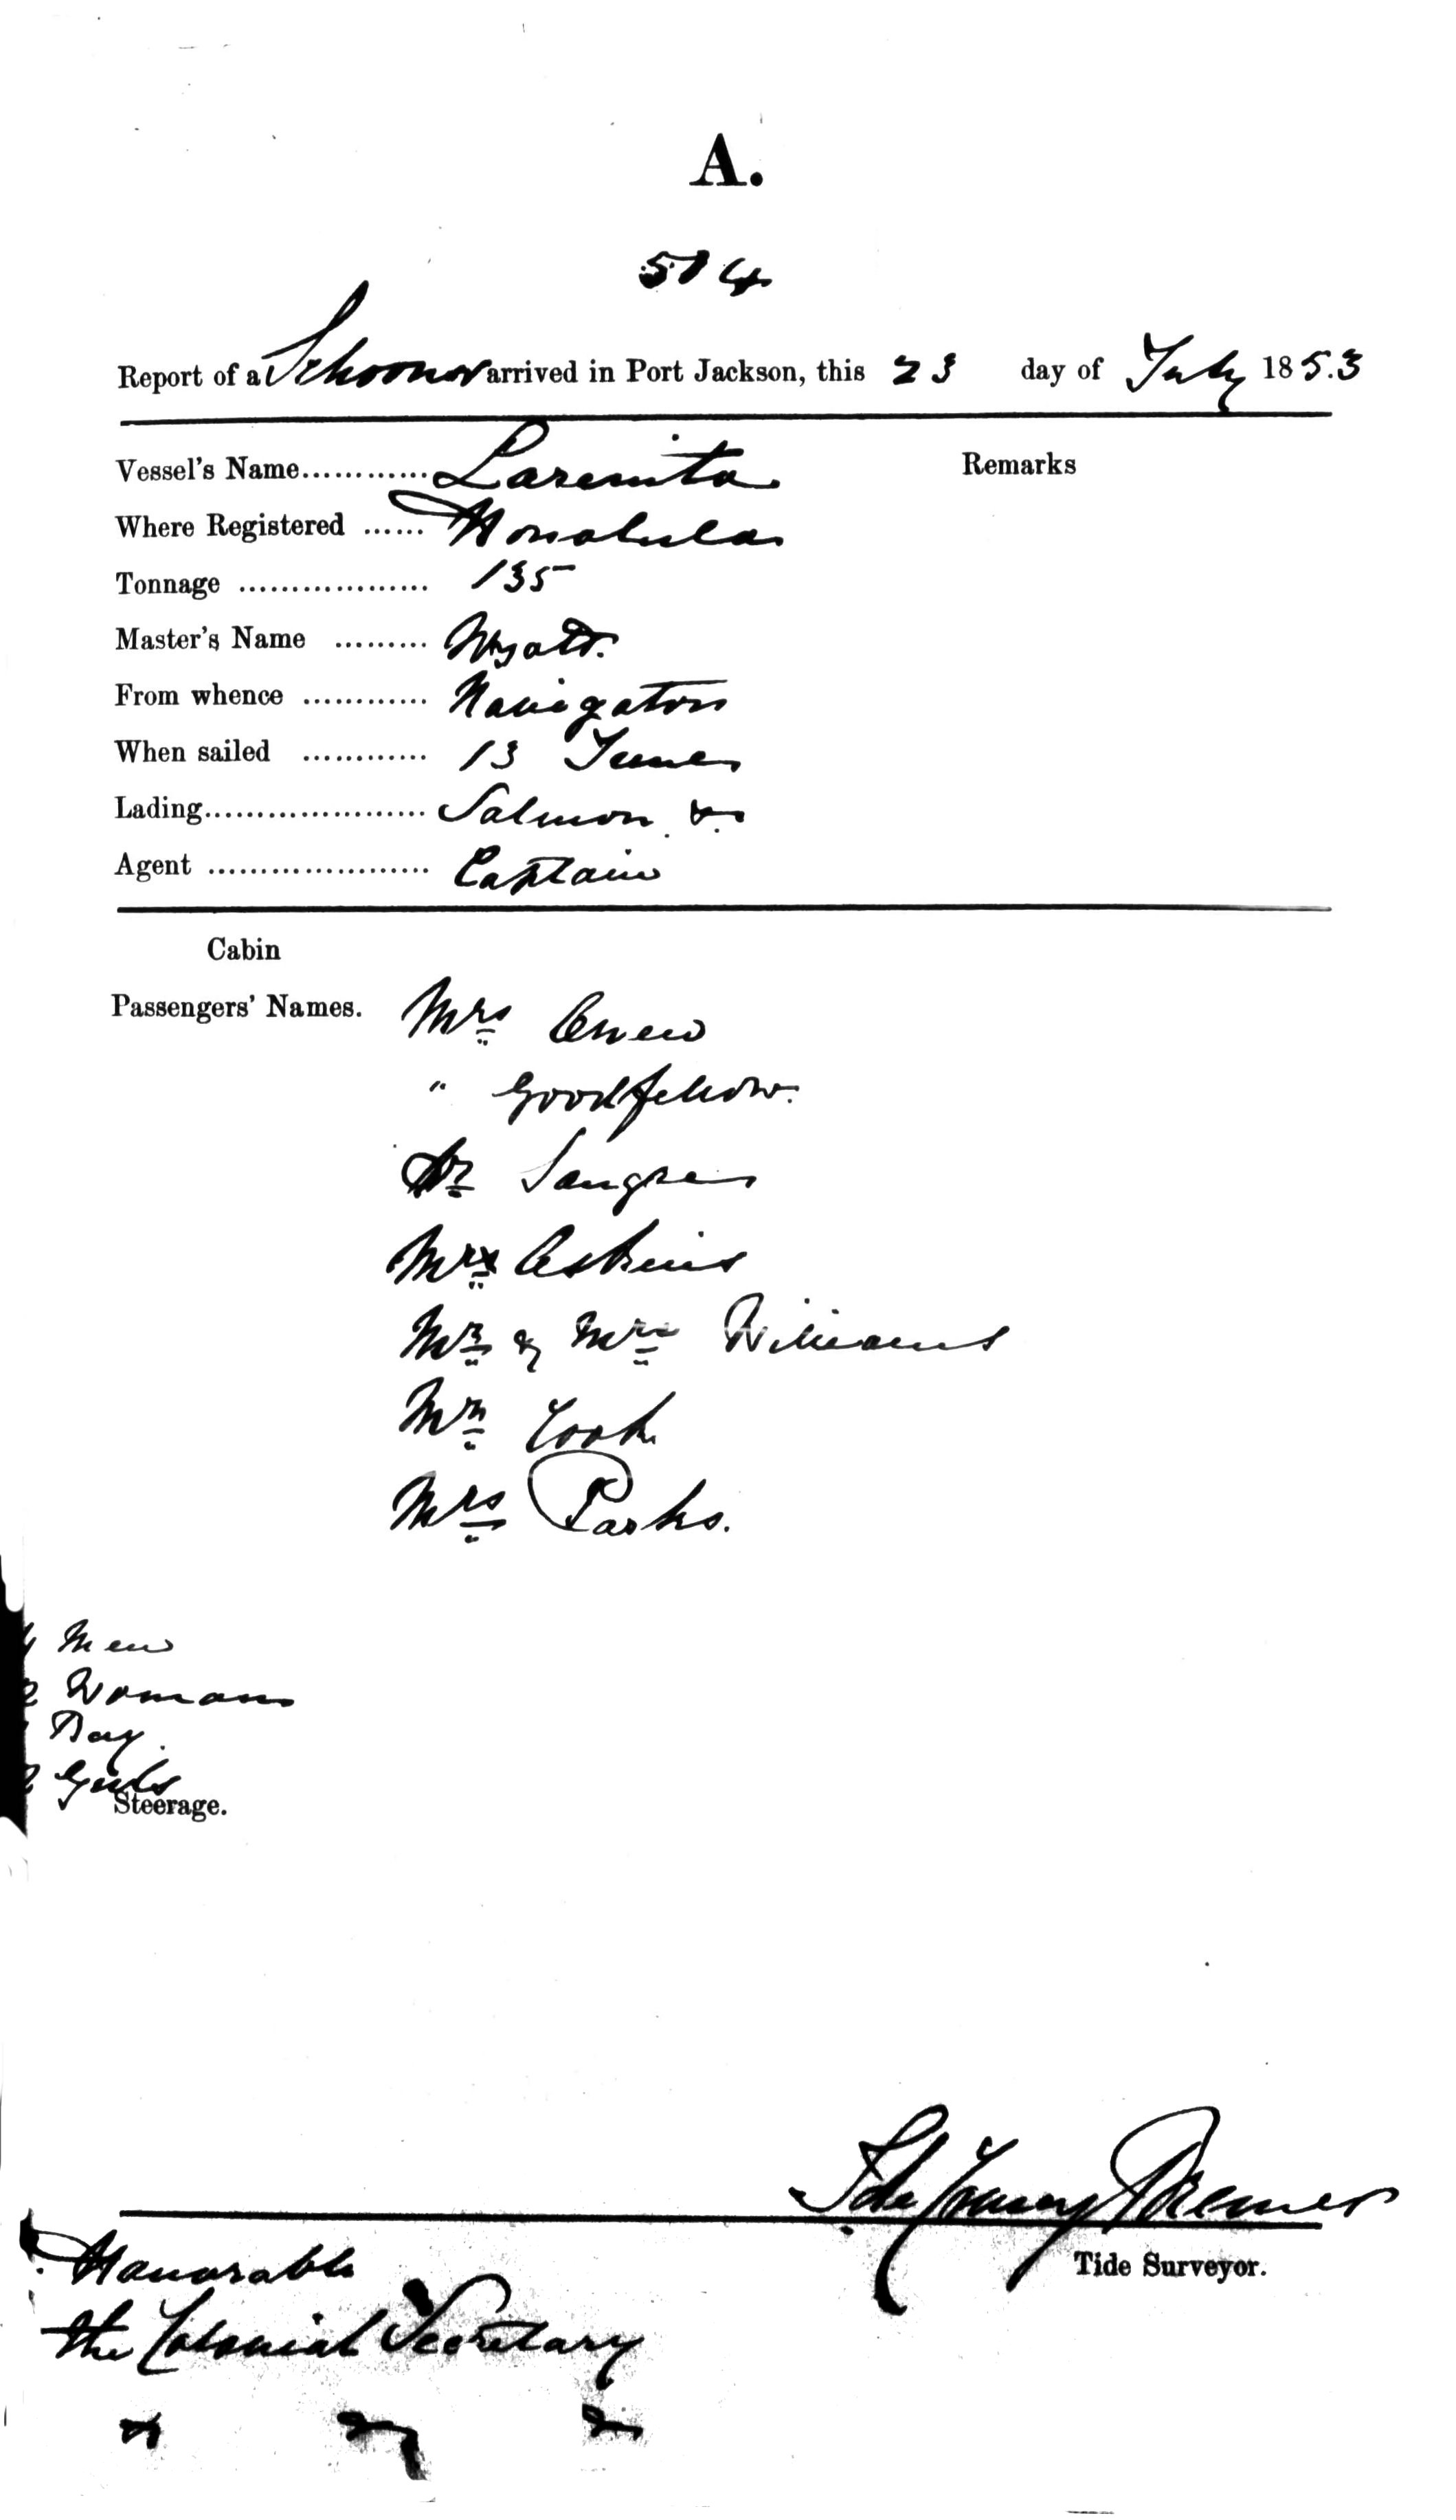 A.
514
Report of a Schooner arrived in Port Jackson, this 23 day of July 1853
Vessel's Name............ Laremita Remarks
Where Registered ...... Honolulu
Tonnage .................. 135
Master's Name ......... Wyatt.
From whence ............ Navigators
When sailed ............ 13 June
Lading..................... Salmon &.
Agent ..................... Captain
Cabin
Passengers' Names. Mrs Crew
" Goodfellow.
Dr
Mrs Askins
Mr & Mrs Williams
Mr Cook
Mrs Parks.
Men
Woman
Boy.
Girls
Steerage.
Tide Surveyor.
Honorable
the Colonial Secretary
&c &c &c